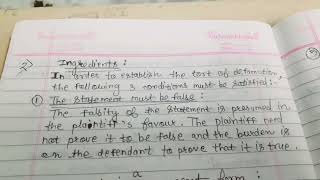 2) Ingredients:
In order to establish the tort of defamation,
the following 3 conditions must be satisfied:-
① The statement must be false:
The falsity of the statement is presumed in
the plaintiff's favour. The plaintiff need
not prove it to be false and the burden is
on the defendant to prove that it is true.
a
form: